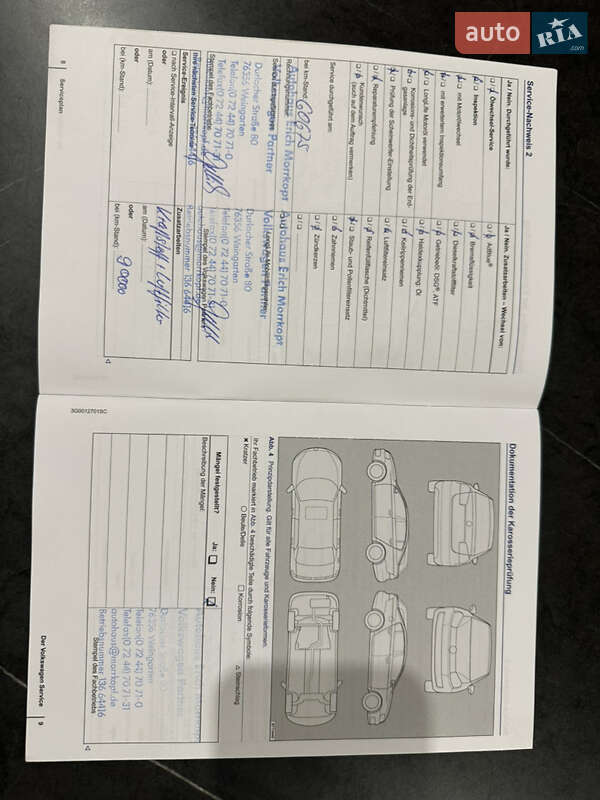 auto
RIA
.com
Service-Nachweis 2
Ja / Nein. Durchgeführt wurde:
Ölwechsel-Service
Inspektion
mit Motorölwechsel
mit erweitertem Inspektionsumfang
LongLife Motoröl verwendet
Korrosions- und Dichtheitsprüfung der Erdgasanlage
Prüfung der Scheinwerfer-Einstellung
Reparaturempfehlung
Kundenwunsch
(auch auf dem Auftrag vermerken)
Service durchgeführt am:
bei km-Stand: 60675
Autohaus Erich Morrkopf
Volkswagen Partner
Durlacher Straße 80
76356 Weingarten
Telefon (0 72 44) 70 71-0
Stempel des Fachbetriebs
Ihre nächsten Service-Termine
Service-Ereignis
nach Service-Intervall-Anzeige
oder
am (Datum):
oder
bei (km-Stand):
Ja / Nein. Zusatzarbeiten – Wechsel von:
AdBlue®
Bremsflüssigkeit
Dieselkraftstofffilter
Getriebeöl: DSG®, ATF
Haldexkupplung: Öl
Keilrippenriemen
Luftfiltereinsatz
Reifenfüllflasche (Dichtmittel)
Staub- und Pollenfiltereinsatz
Zahnriemen
Zündkerzen
Autohaus Erich Morrkopf
Volkswagen Partner
Durlacher Straße 80
76356 Weingarten
Telefon (0 72 44) 70 71-0
Betriebsnummer 136 64416
Zusatzarbeiten
am (Datum):
oder
bei (km-Stand): 90000
8 Serviceplan
5G0012701BC
Dokumentation der Karosserieprüfung
Abb. 4 Prinzipdarstellung. Gilt für alle Fahrzeuge und Karosserieformen.
Ihr Fachbetrieb markiert in Abb. 4 beschädigte Teile durch folgende Symbole:
× Kratzer ○ Beule/Delle □ Korrosion △ Steinschlag
Mängel festgestellt? Ja: Nein:
Beschreibung der Mängel:
76356 Weingarten
Telefon (0 72 44) 70 71-0
Telefax (0 72 44) 70 71-31
autohaus@morrkopf.de
Betriebsnummer 136 64416
Stempel des Fachbetriebs
Der Volkswagen Service 9